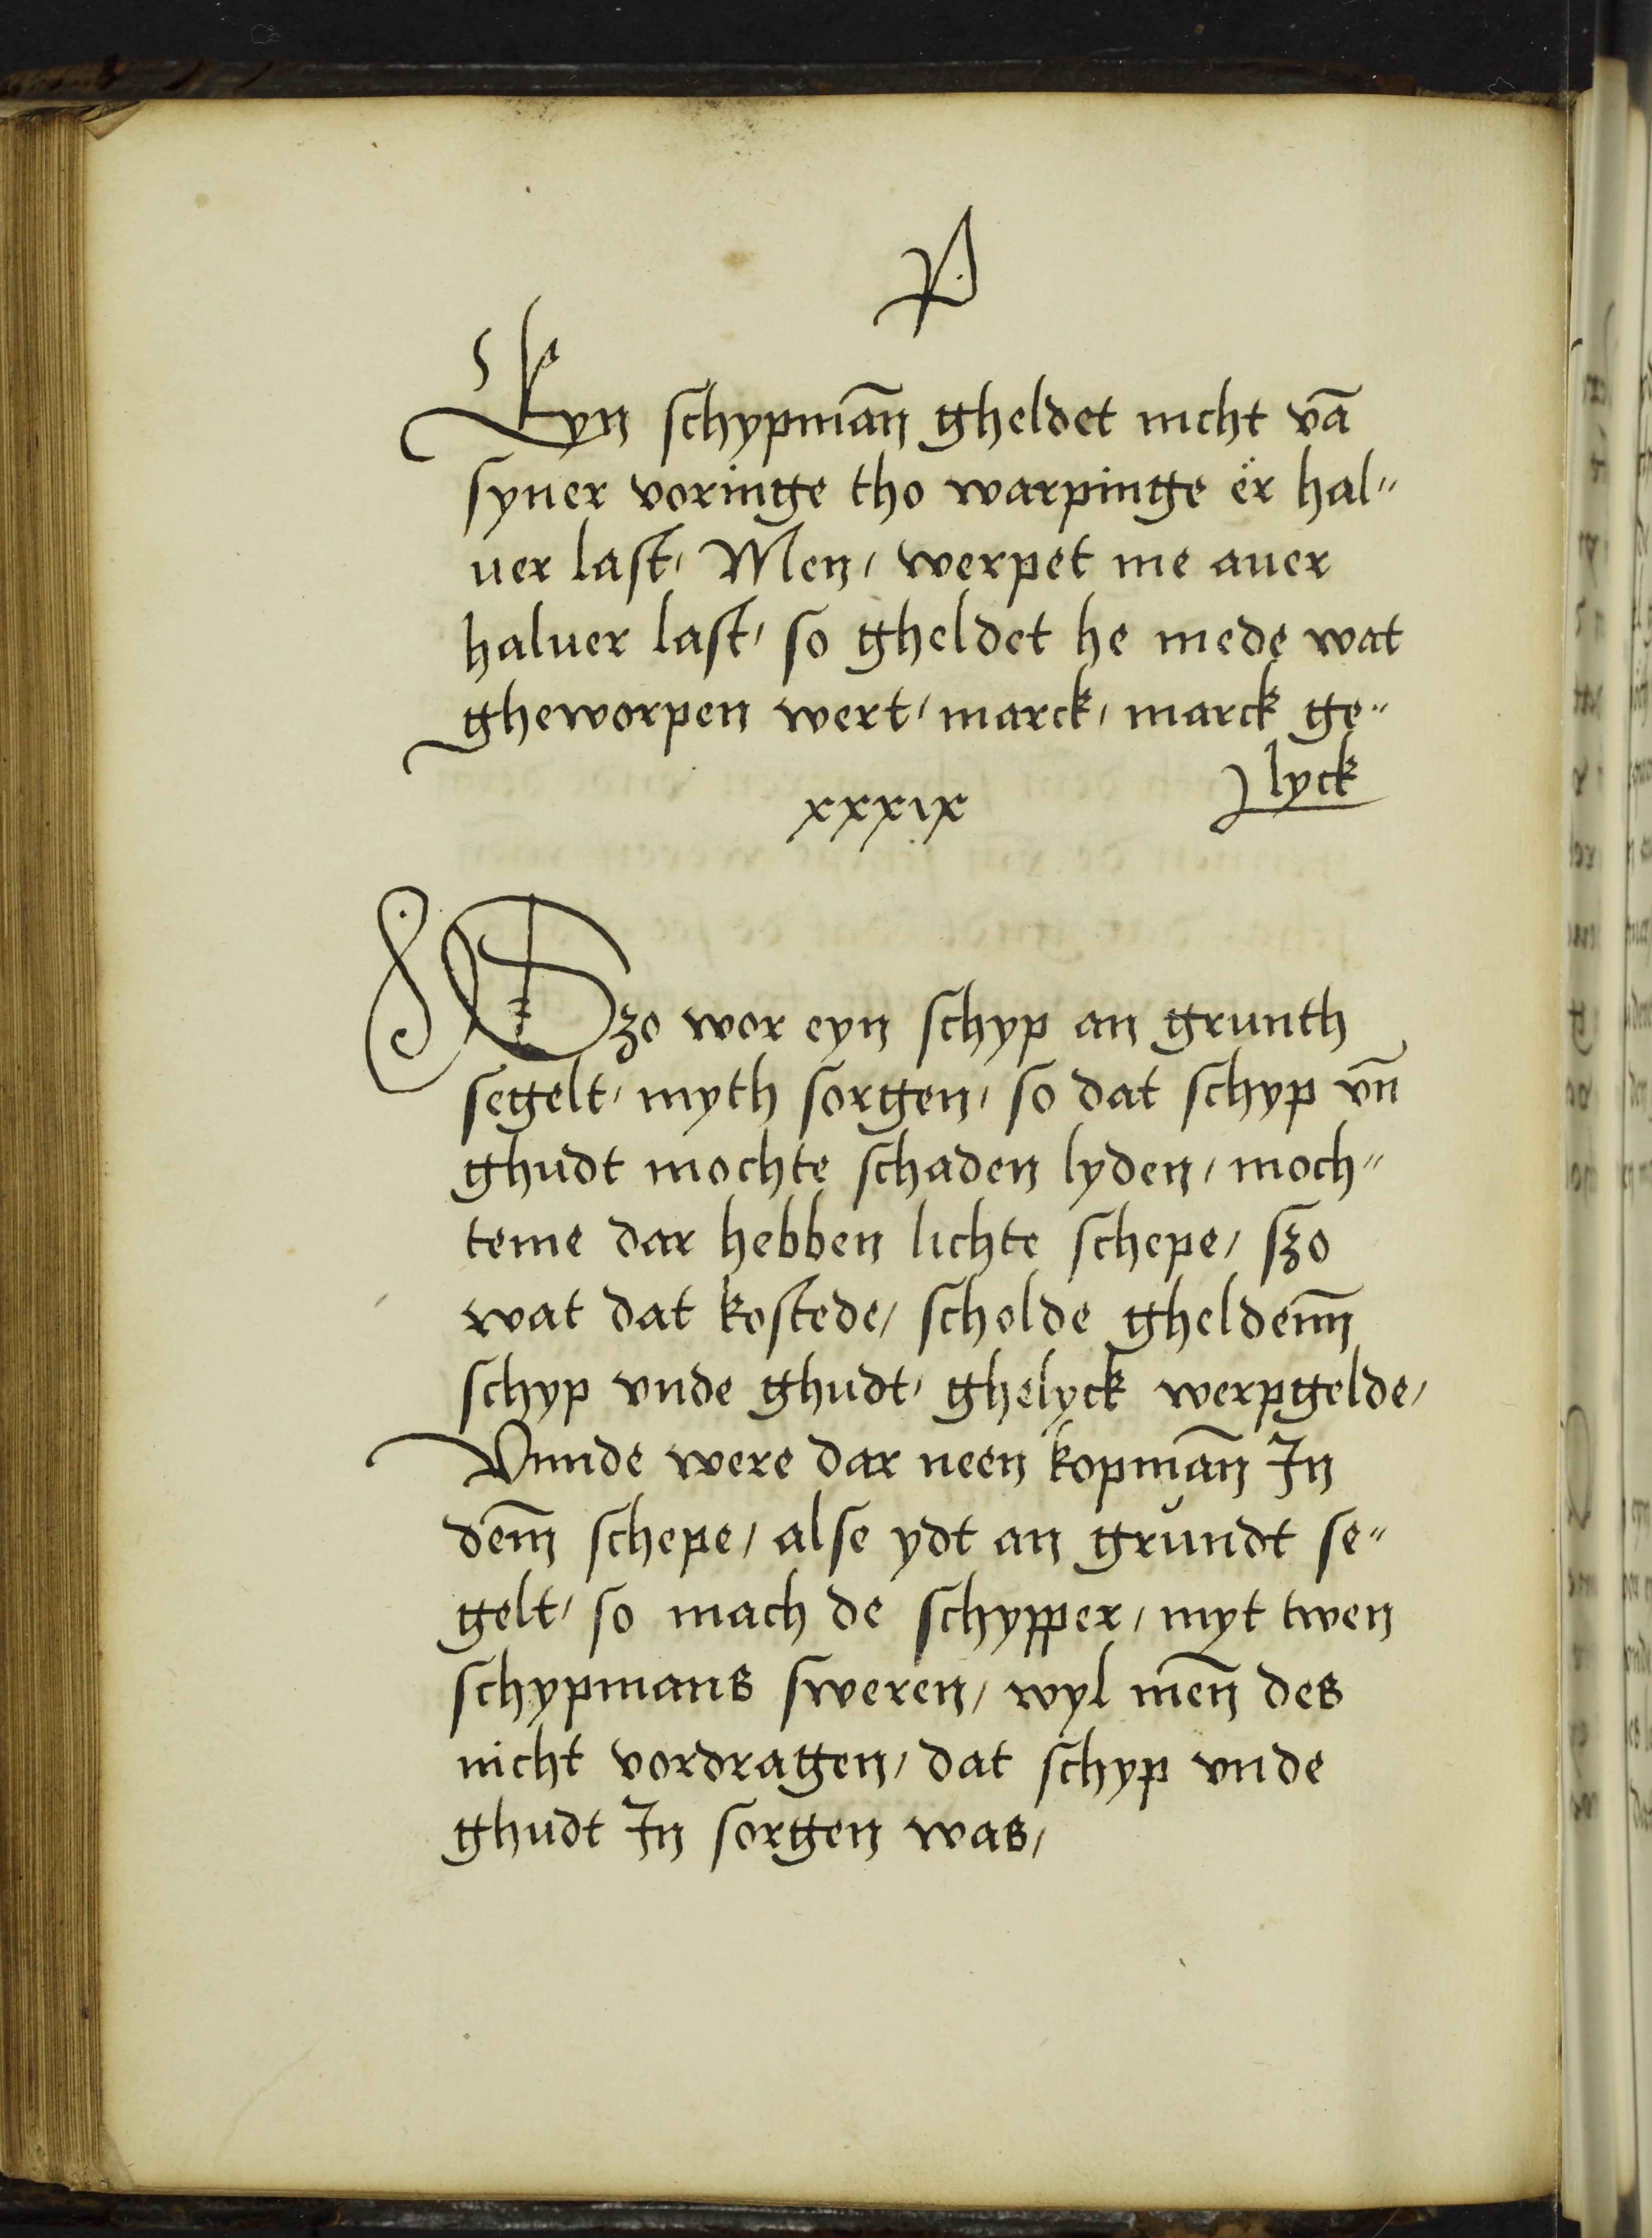 Eyn schypmān gheldet nicht vā
syner voringe tho warpinge ër hal"
uer last, Men, werpet me auer
haluer last, so gheldet he mede wat
gheworpen wert, marck, marck ge"
lyck
xxxix
Szo wor eyn schyp an grunth
segelt, myth sorgen, so dat schyp vn̄
ghudt mochte schaden lyden, moch"
teme dar hebben lichte schepe, szo
wat dat kostede, scholde gheldenn̄
schyp vnde ghudt, ghelyck werpgelde,
Vnnde were dar neen kopmān In
dem̄ schepe, alse ydt an grundt se"
gelt, so mach de schypper, myt twen
schypmans sweren, wyl men̄ des
nicht vordragen, dat schyp vnde
ghudt In sorgen was,